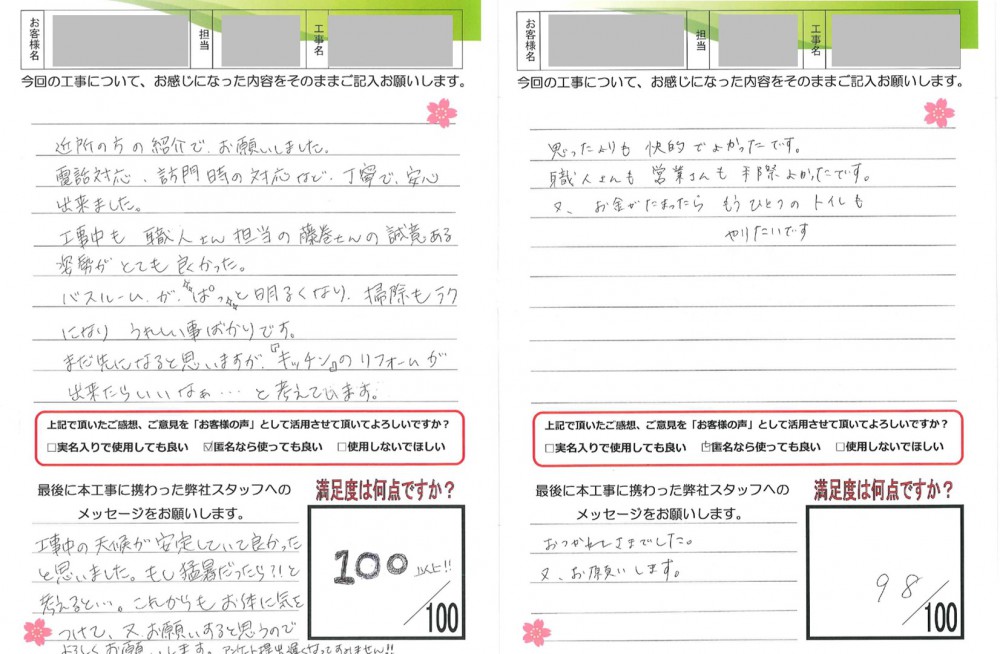 お客様名
担当
工事名
今回の工事について、お感じになった内容をそのままご記入お願いします。
近所の方の紹介で、お願いしました。
電話対応、訪問時の対応など、丁寧で、安心
出来ました。
工事中も 職人さん担当の藤巻さんの誠意ある
姿勢がとても良かった。
バスルームが、“ぱっ”と明るくなり、掃除もラク
になり うれしい事ばかりです。
まだ先になると思いますが、『キッチン』のリフォームが
出来たらいいなぁ…と考えています。
上記で頂いたご感想、ご意見を「お客様の声」として活用させて頂いてよろしいですか?
□実名入りで使用しても良い ☑匿名なら使っても良い □使用しないでほしい
最後に本工事に携わった弊社スタッフへの
メッセージをお願いします。
工事中の天候が安定していて良かった
と思いました。もし猛暑だったら?!と
考えると…。これからもお体に気を
つけて、又、お願いすると思うので
よろしくお願いします。アンケート提出遅くなってすみません!!
満足度は何点ですか?
100以上!!
/100
お客様名
担当
工事名
今回の工事について、お感じになった内容をそのままご記入お願いします。
思ったよりも 快的でよかったです。
職人さんも 営業さんも 手際よかったです。
又、お金がたまったら もうひとつの トイレも
やりたいです
上記で頂いたご感想、ご意見を「お客様の声」として活用させて頂いてよろしいですか?
□実名入りで使用しても良い ☑匿名なら使っても良い □使用しないでほしい
最後に本工事に携わった弊社スタッフへの
メッセージをお願いします。
おつかれさまでした。
又、お願いします。
満足度は何点ですか?
98
/100